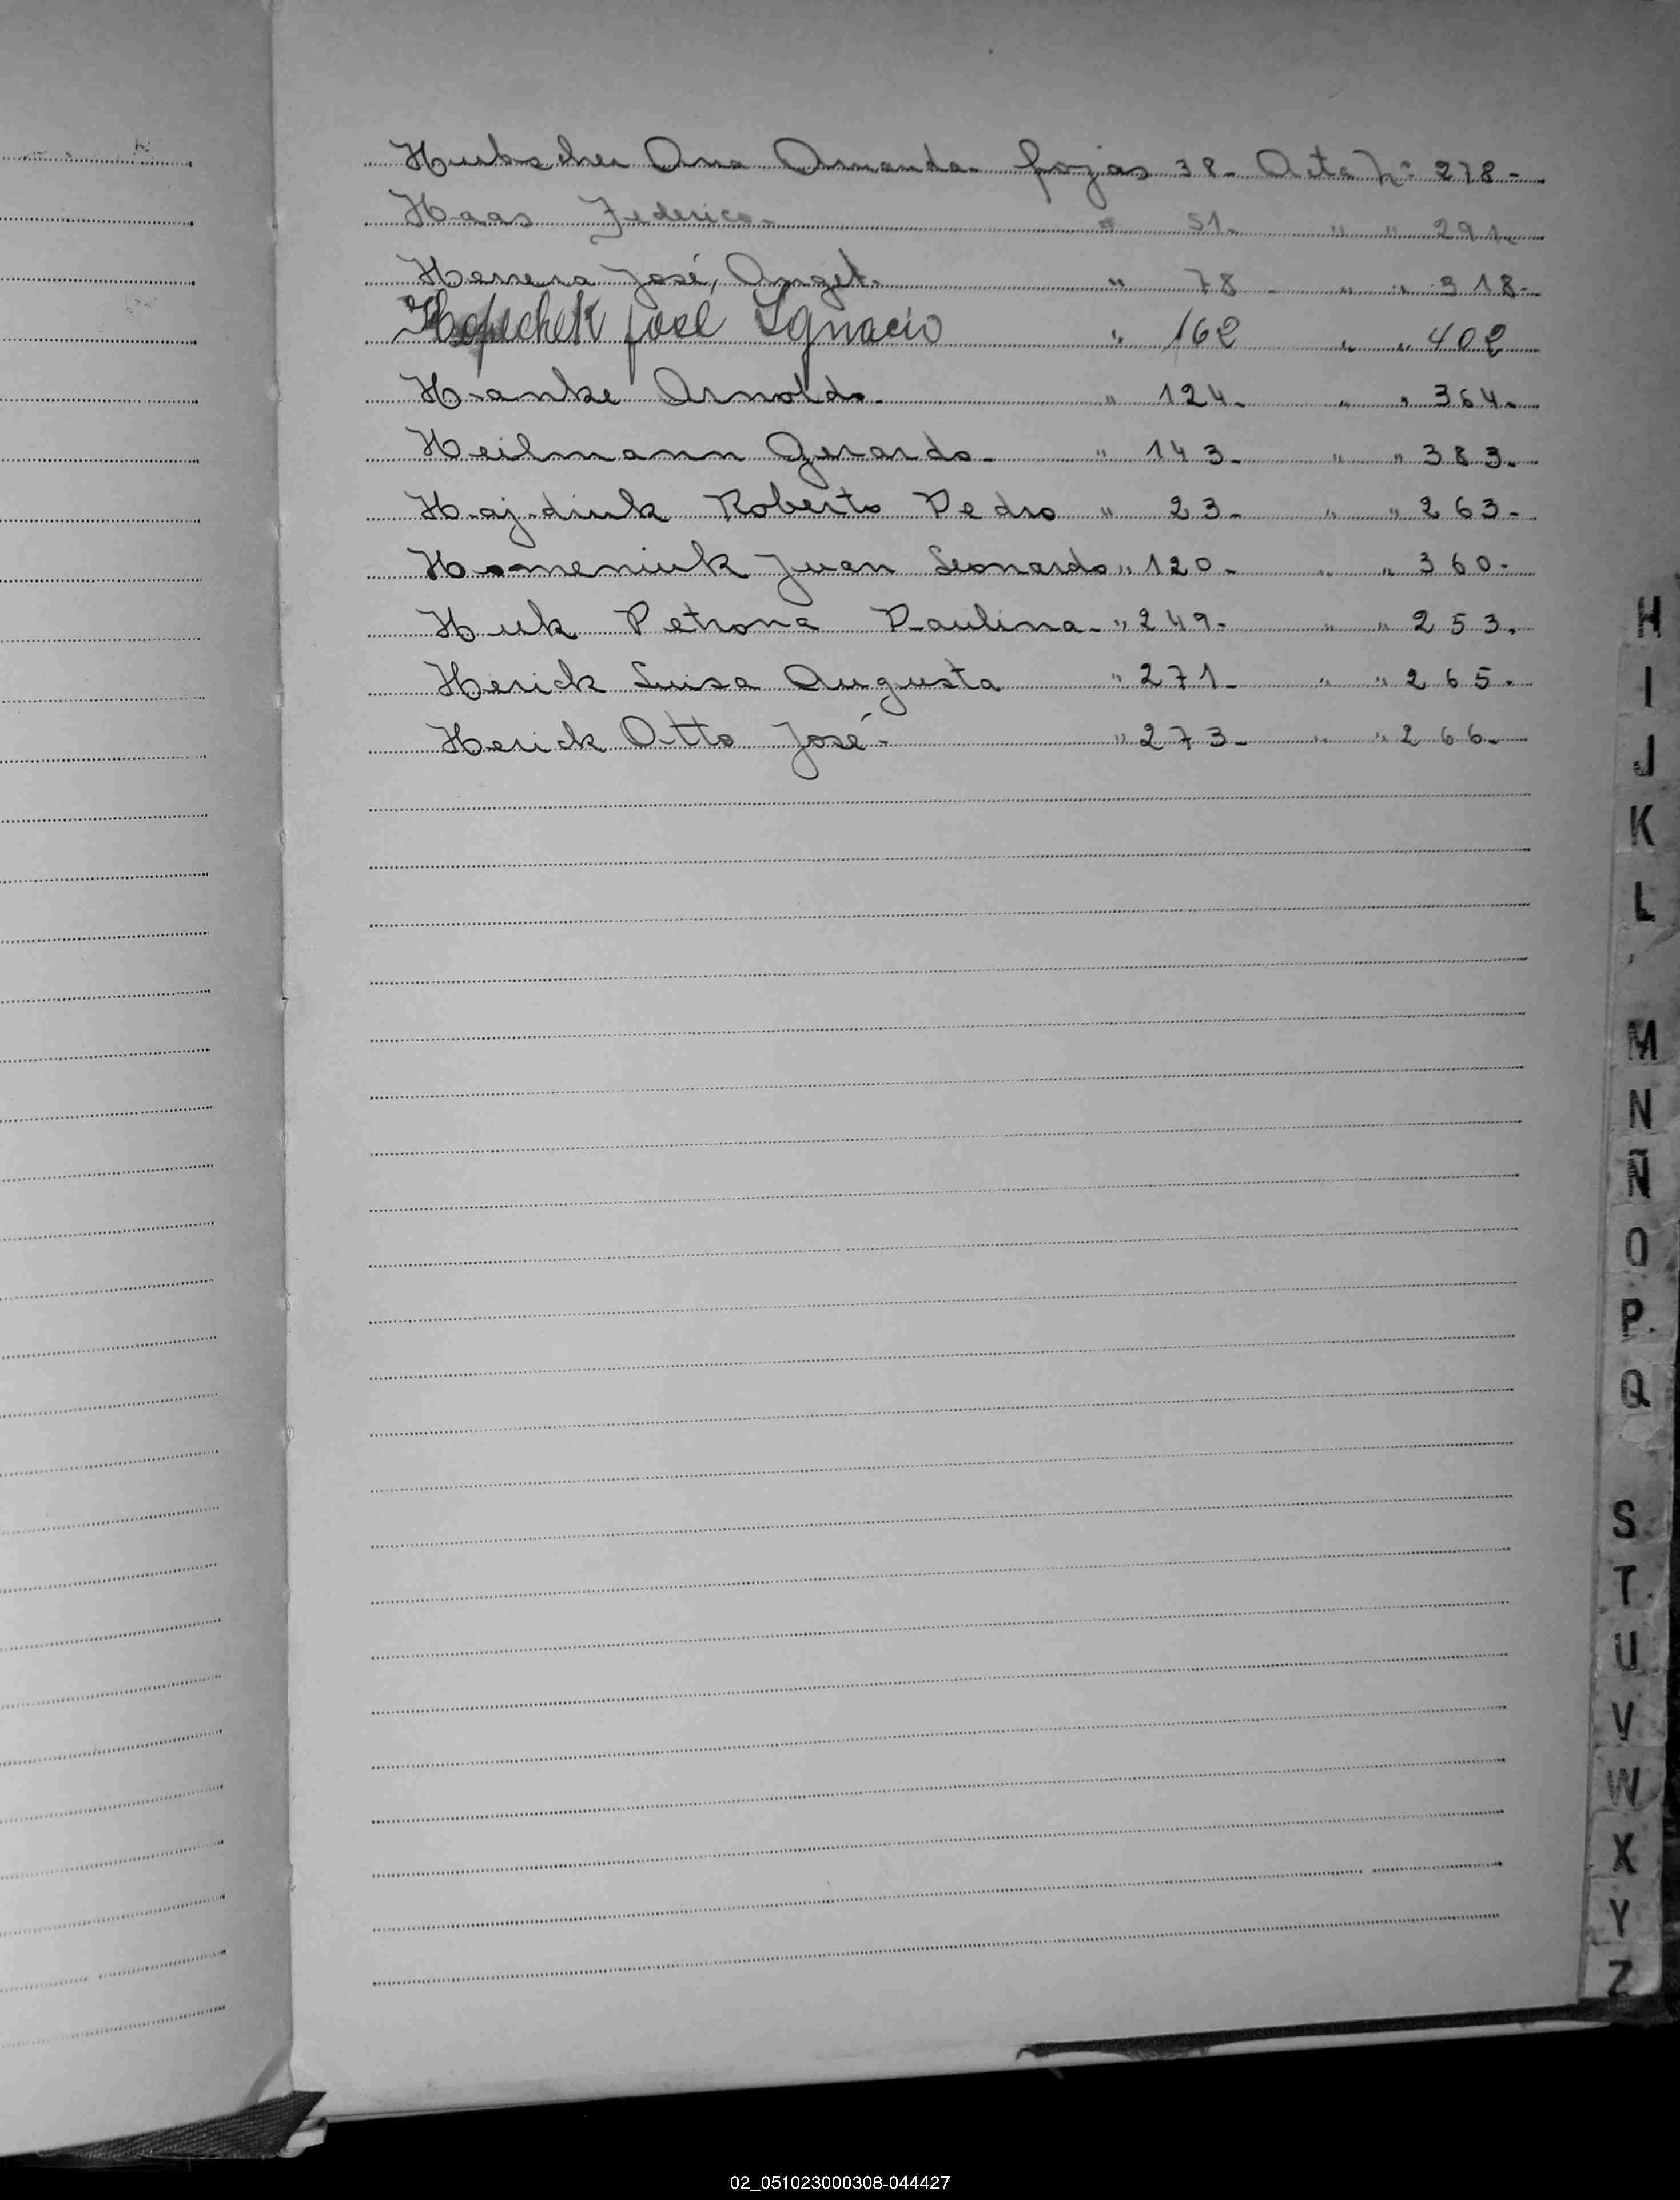 Hubscher Ana Amanda. fojas 38- Acta Nº 278-
Haas Federico- " 51- " " 291-
Herrera José, Angel. " 78- " " 318-
José Ignacio " 162 " " 402
Hanke Arnoldo. " 124- " " 364-
Heilmann Gerardo- " 143- " " 383-
Hajdiuk Roberto Pedro " 23- " " 263-
Homeniuk Juan Leonardo " 120- " " 360-
Huk Petrona Paulina- " 249- " " 253.
Herick Luisa Augusta " 271- " " 265-
Herick Otto José- " 273- " " 266-
H
I
J
K
L
M
N
Ñ
O
P.
Q
S
T
U
V
W
X
Y
Z
02_051023000308-044427